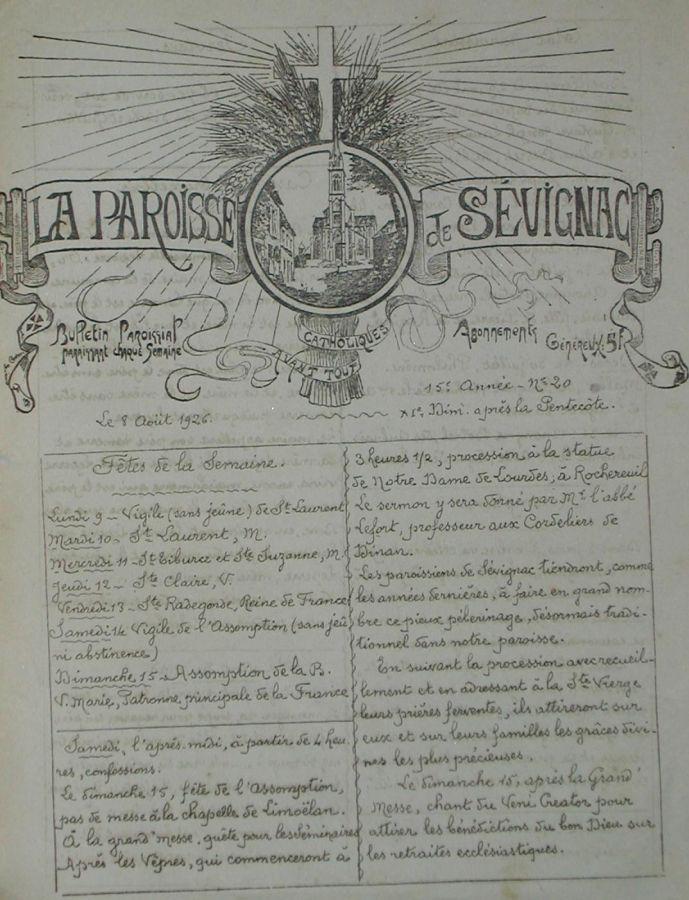 LA PAROISSE
de SÉVIGNAC
Bulletin Paroissial
paraissant chaque Semaine
CATHOLIQUES
AVANT TOUT
Abonnements
Généreux: 5F
15e Année - No 20
Le 8 Août 1926.
XIe Dim. après la Pentecôte.
Fêtes de la Semaine.
Lundi 9 - Vigile (sans jeûne) de St Laurent
Mardi 10 - St Laurent, M.
Mercredi 11 - St Tiburce et Ste Suzanne, M.
Jeudi 12 - Ste Claire, V.
Vendredi 13 - Ste Radegonde, Reine de France
Samedi 14 Vigile de l'Assomption (sans jeû
ni abstinence)
Dimanche 15 - Assomption de la B.
V. Marie, Patronne principale de la France
Samedi, l'après-midi, à partir de 4 heu
res, confessions.
Le dimanche 15, fête de l'Assomption,
pas de messe à la chapelle de Limoëlan.
À la grand'messe, quête pour les Séminaires
Après les Vêpres, qui commenceront à
3 heures 1/2, procession à la statue
de Notre Dame de Lourdes, à Rochereuil
Le sermon y sera donné par Mr l'abbé
Lefort, professeur aux Cordeliers de
Dinan.
Les paroissiens de Sévignac tiendront, comme
les années dernières, à faire en grand nom-
bre ce pieux pèlerinage, désormais tradi-
tionnel dans notre paroisse.
En suivant la procession avec recueil-
lement et en adressant à la Ste Vierge
leurs prières ferventes, ils attireront sur
eux et sur leurs familles les grâces divi-
nes les plus précieuses.
Le dimanche 15, après la Grand'
Messe, chant du Veni Creator pour
attirer les bénédictions du bon Dieu sur
les retraites ecclésiastiques.